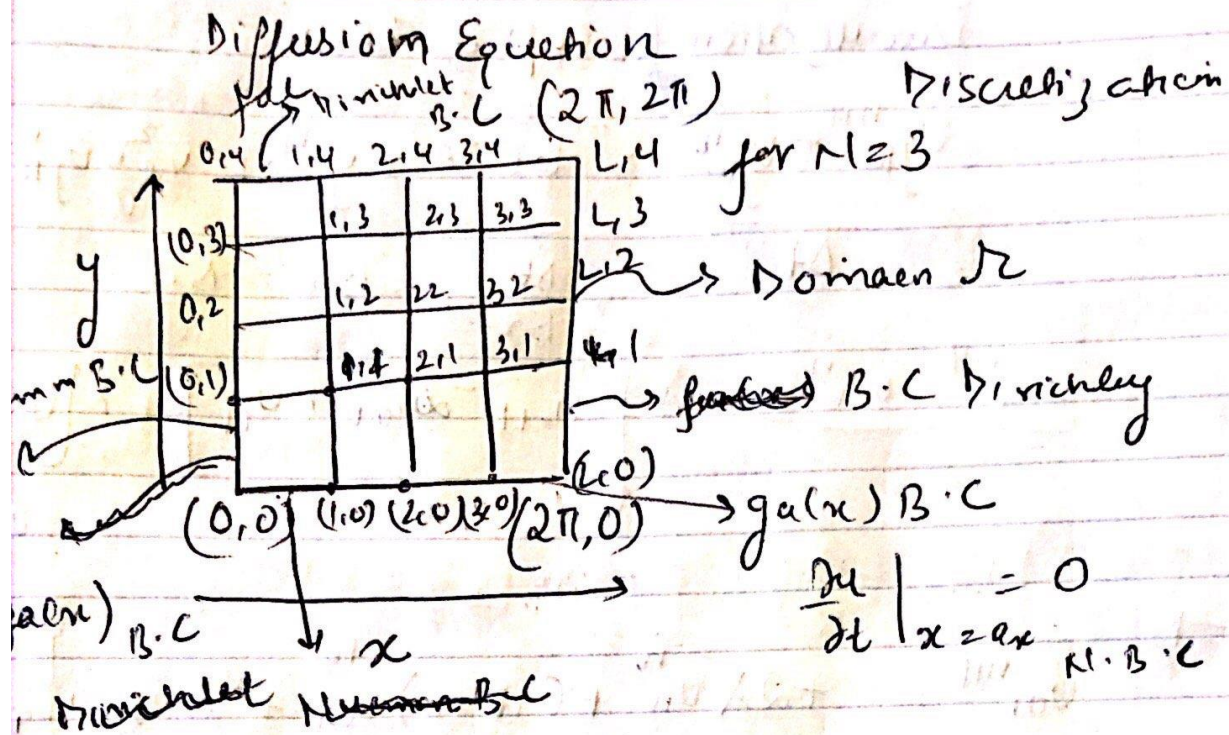 Diffusion Equetion
Dirichlet
B.C (2π, 2π)
Discretiz ation
for N=3
0,4 1,4 2,4 3,4 L,4
(0,3) 1,3 2,3 3,3 L,3
y
0,2 1,2 22 3,2 L,2
Domaen Ω
mm B.C (0,1) 1,1 2,1 3,1 4,1
B.C Dirichley
(0,0) (1,0) (2,0) (3,0) (2π,0) (L,0)
ga(x) B.C
∂u/∂t | x=ax = 0
N.B.C
ga(x) B.C
x
Dirichlet Neumann B.C